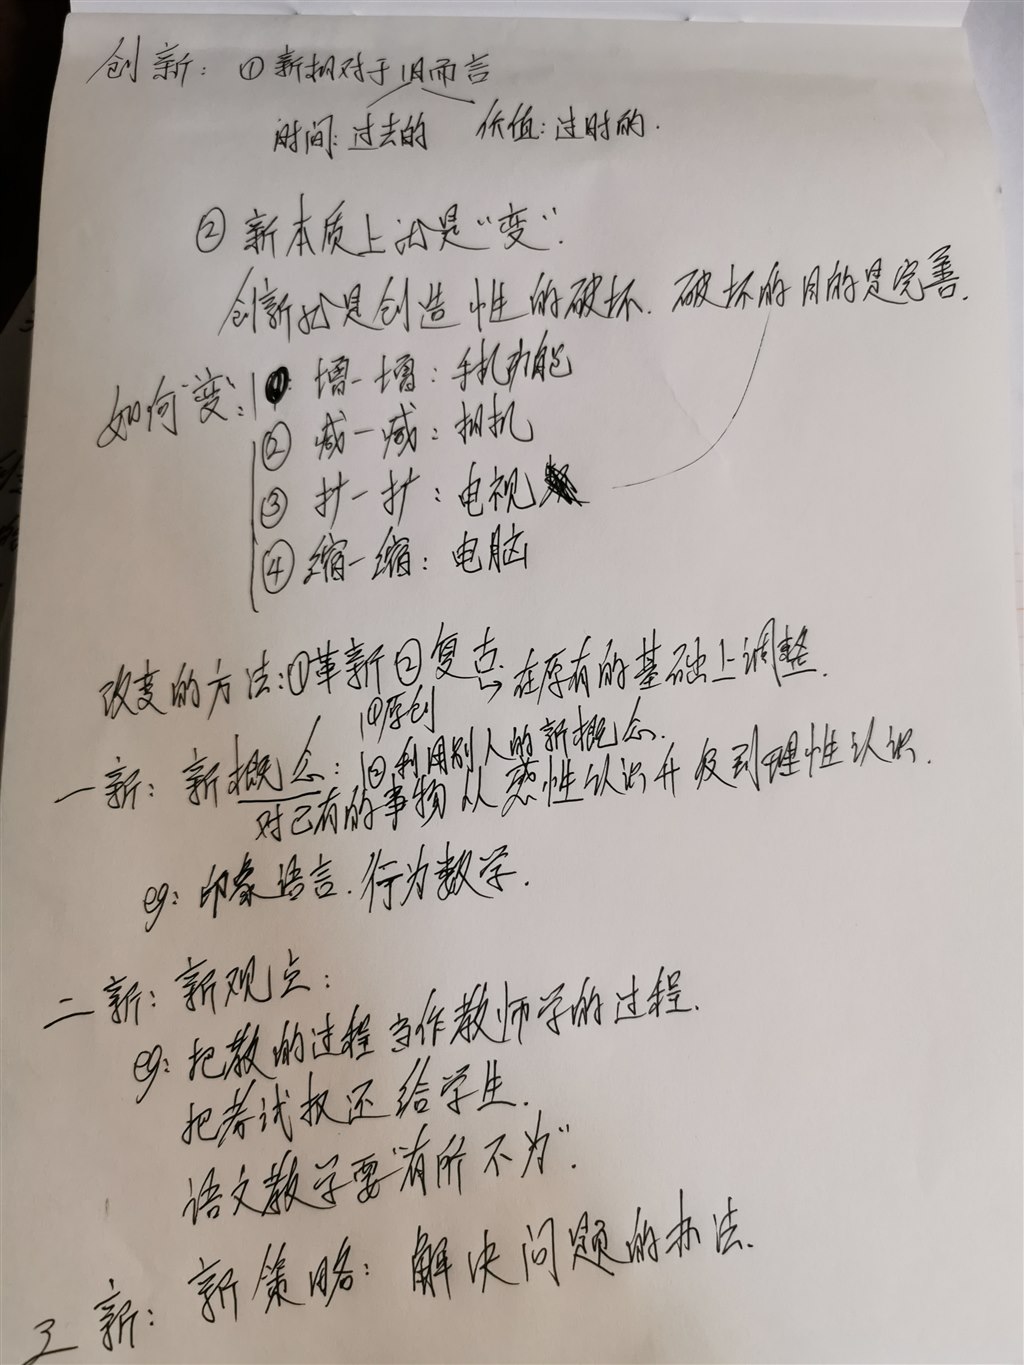 创新：①新相对于旧而言
时间：过去的 价值：过时的.
②新本质上就是“变”.
创新就是创造性的破坏.破坏的目的是完善.
如何“变”：
①增一增：手机功能
②减一减：相机
③扩一扩：电视
④缩一缩：电脑
改变的方法：①革新②复点→在原有的基础上调整.
①原创
一新：新概念：②利用别人的新概念.
对已有的事物从感性认识升级到理性认识.
eg：印象语言.行为教学.
二新：新观点：
eg：把教的过程当作教师学的过程.
把考试权还给学生.
语文教学要“有所不为”.
三新：新策略：解决问题的办法.